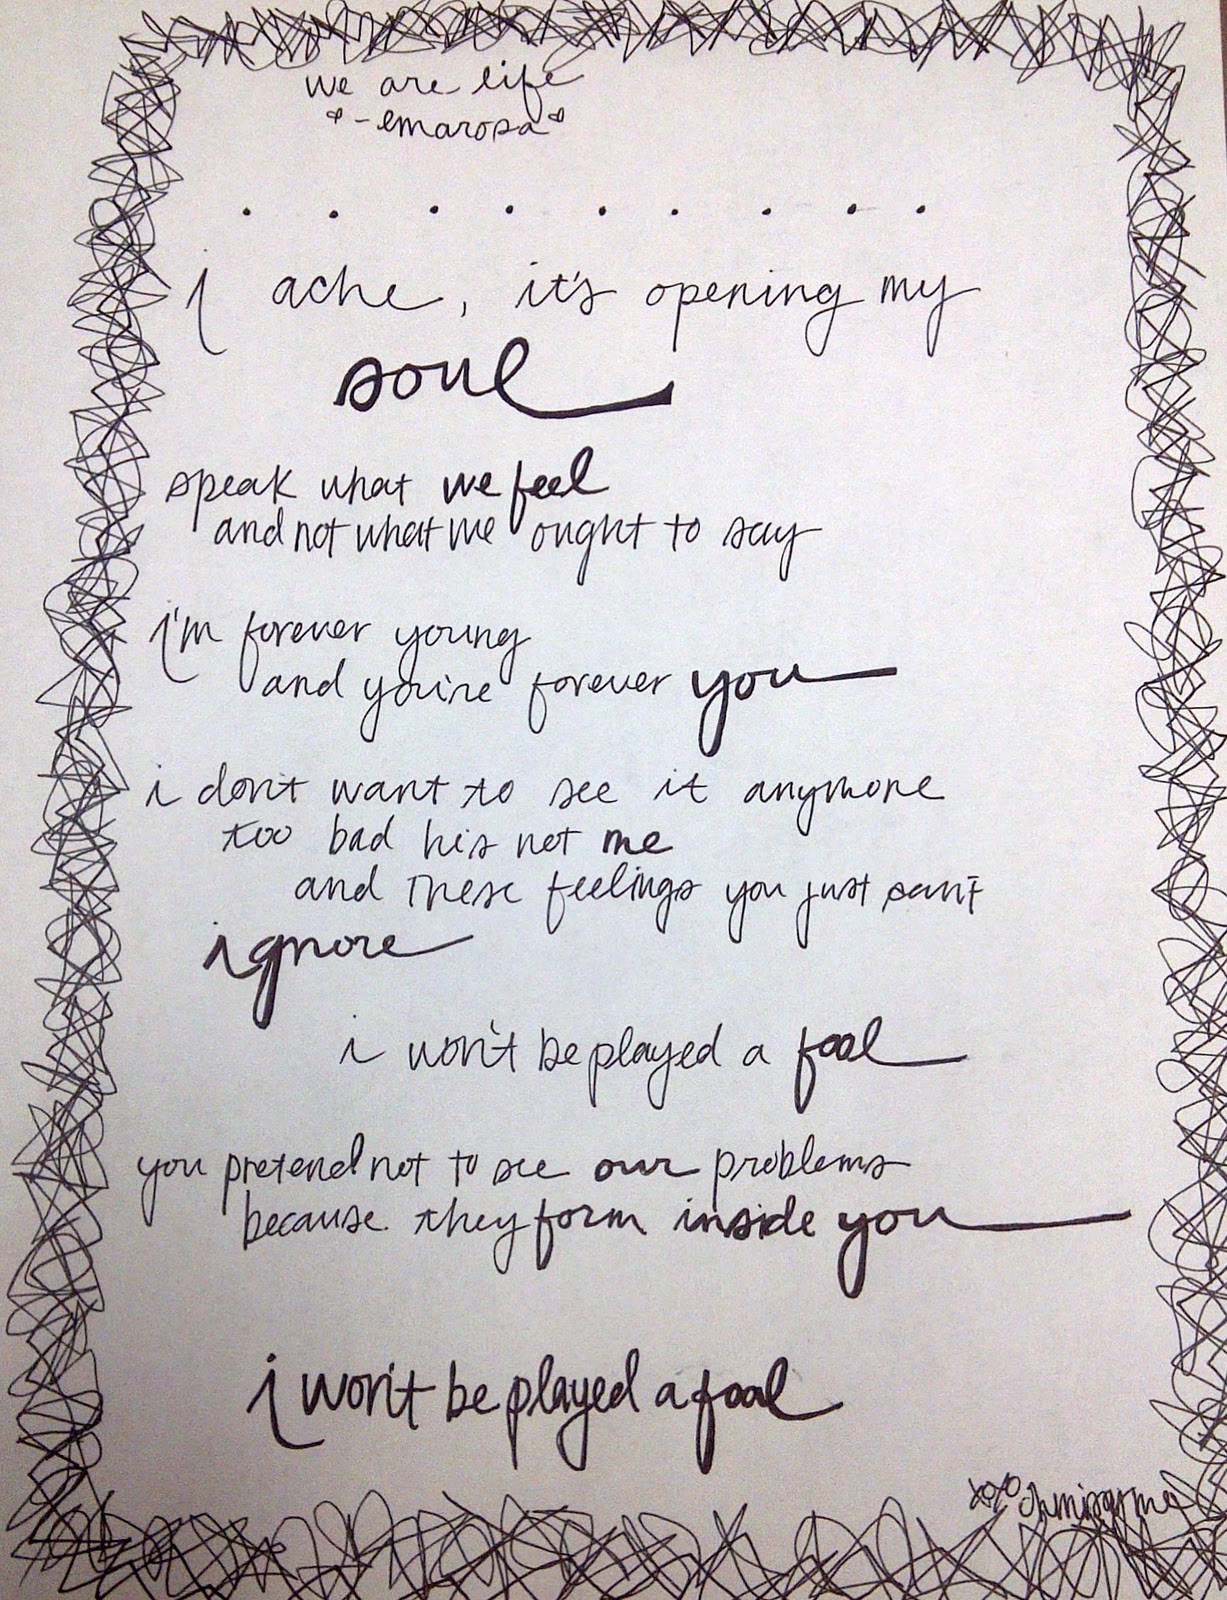 we are life
- emarosa
i ache, it's opening my
soul
speak what we feel
and not what we ought to say
i'm forever young
and you're forever you
i don't want to see it anymore
too bad he's not me
and these feelings you just can't
ignore
i won't be played a fool
you pretend not to see our problems
because they form inside you
i won't be played a fool
xoxo